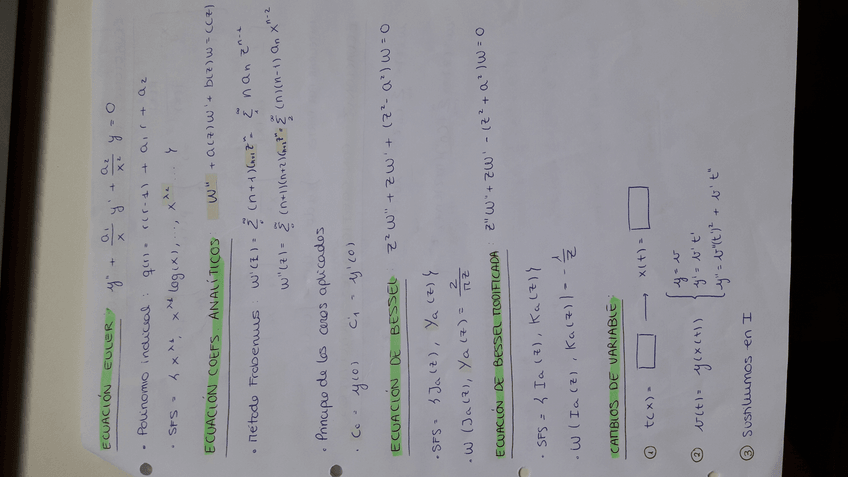 ECUACIÓN EULER: y'' + a₁/x y' + a₂/x² y = 0
• Polinomio indicial: q(r) = r(r-1) + a₁r + a₂
• SFS = { x^λ¹, x^λ¹ log(x), ..., x^λ² }
ECUACIÓN COEFS ANALÍTICOS: w'' + a(z)w' + b(z)w = c(z)
• Método Frobenius: w'(z) = Σ (n+1)aₙ₊₁zⁿ = Σ n aₙ zⁿ⁻¹
w''(z) = Σ (n+1)(n+2)aₙ₊₂zⁿ = Σ (n)(n-1) aₙ xⁿ⁻²
• Principio de los ceros aplicados
• C₀ = y(0) C₁ = y'(0)
ECUACIÓN DE BESSEL: z²w'' + zw' + (z² - a²)w = 0
• SFS = {Ja(z), Ya(z)}
• W(Ja(z), Ya(z)) = 2/πz
ECUACIÓN DE BESSEL MODIFICADA: z''w'' + zw' - (z² + a²)w = 0
• SFS = {Ia(z), Ka(z)}
• W(Ia(z), Ka(z)) = -1/z
CAMBIOS DE VARIABLE:
① t(x) = □ → x(t) = □
② v(t) = y(x(t)) { y = v
y' = v't'
y'' = v''(t')² + v't''
③ Sustituimos en I